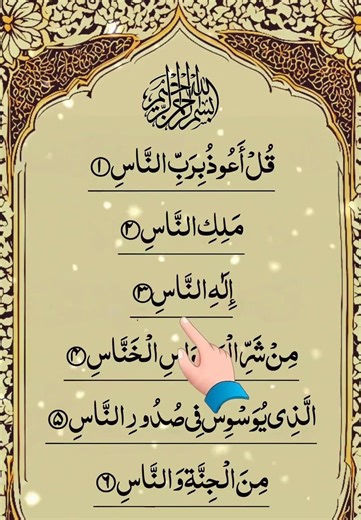 بسم الله الرحمن الرحيم
قُلْ أَعُوذُ بِرَبِّ النَّاسِ ۝١
مَلِكِ النَّاسِ ۝٢
إِلَٰهِ النَّاسِ ۝٣
مِنْ شَرِّ الْخَنَّاسِ ۝۴
الَّذِی یُوَسْوِسُ فِی صُدُورِ النَّاسِ ۝۵
مِنَ الْجِنَّةِ وَ النَّاسِ ۝۶